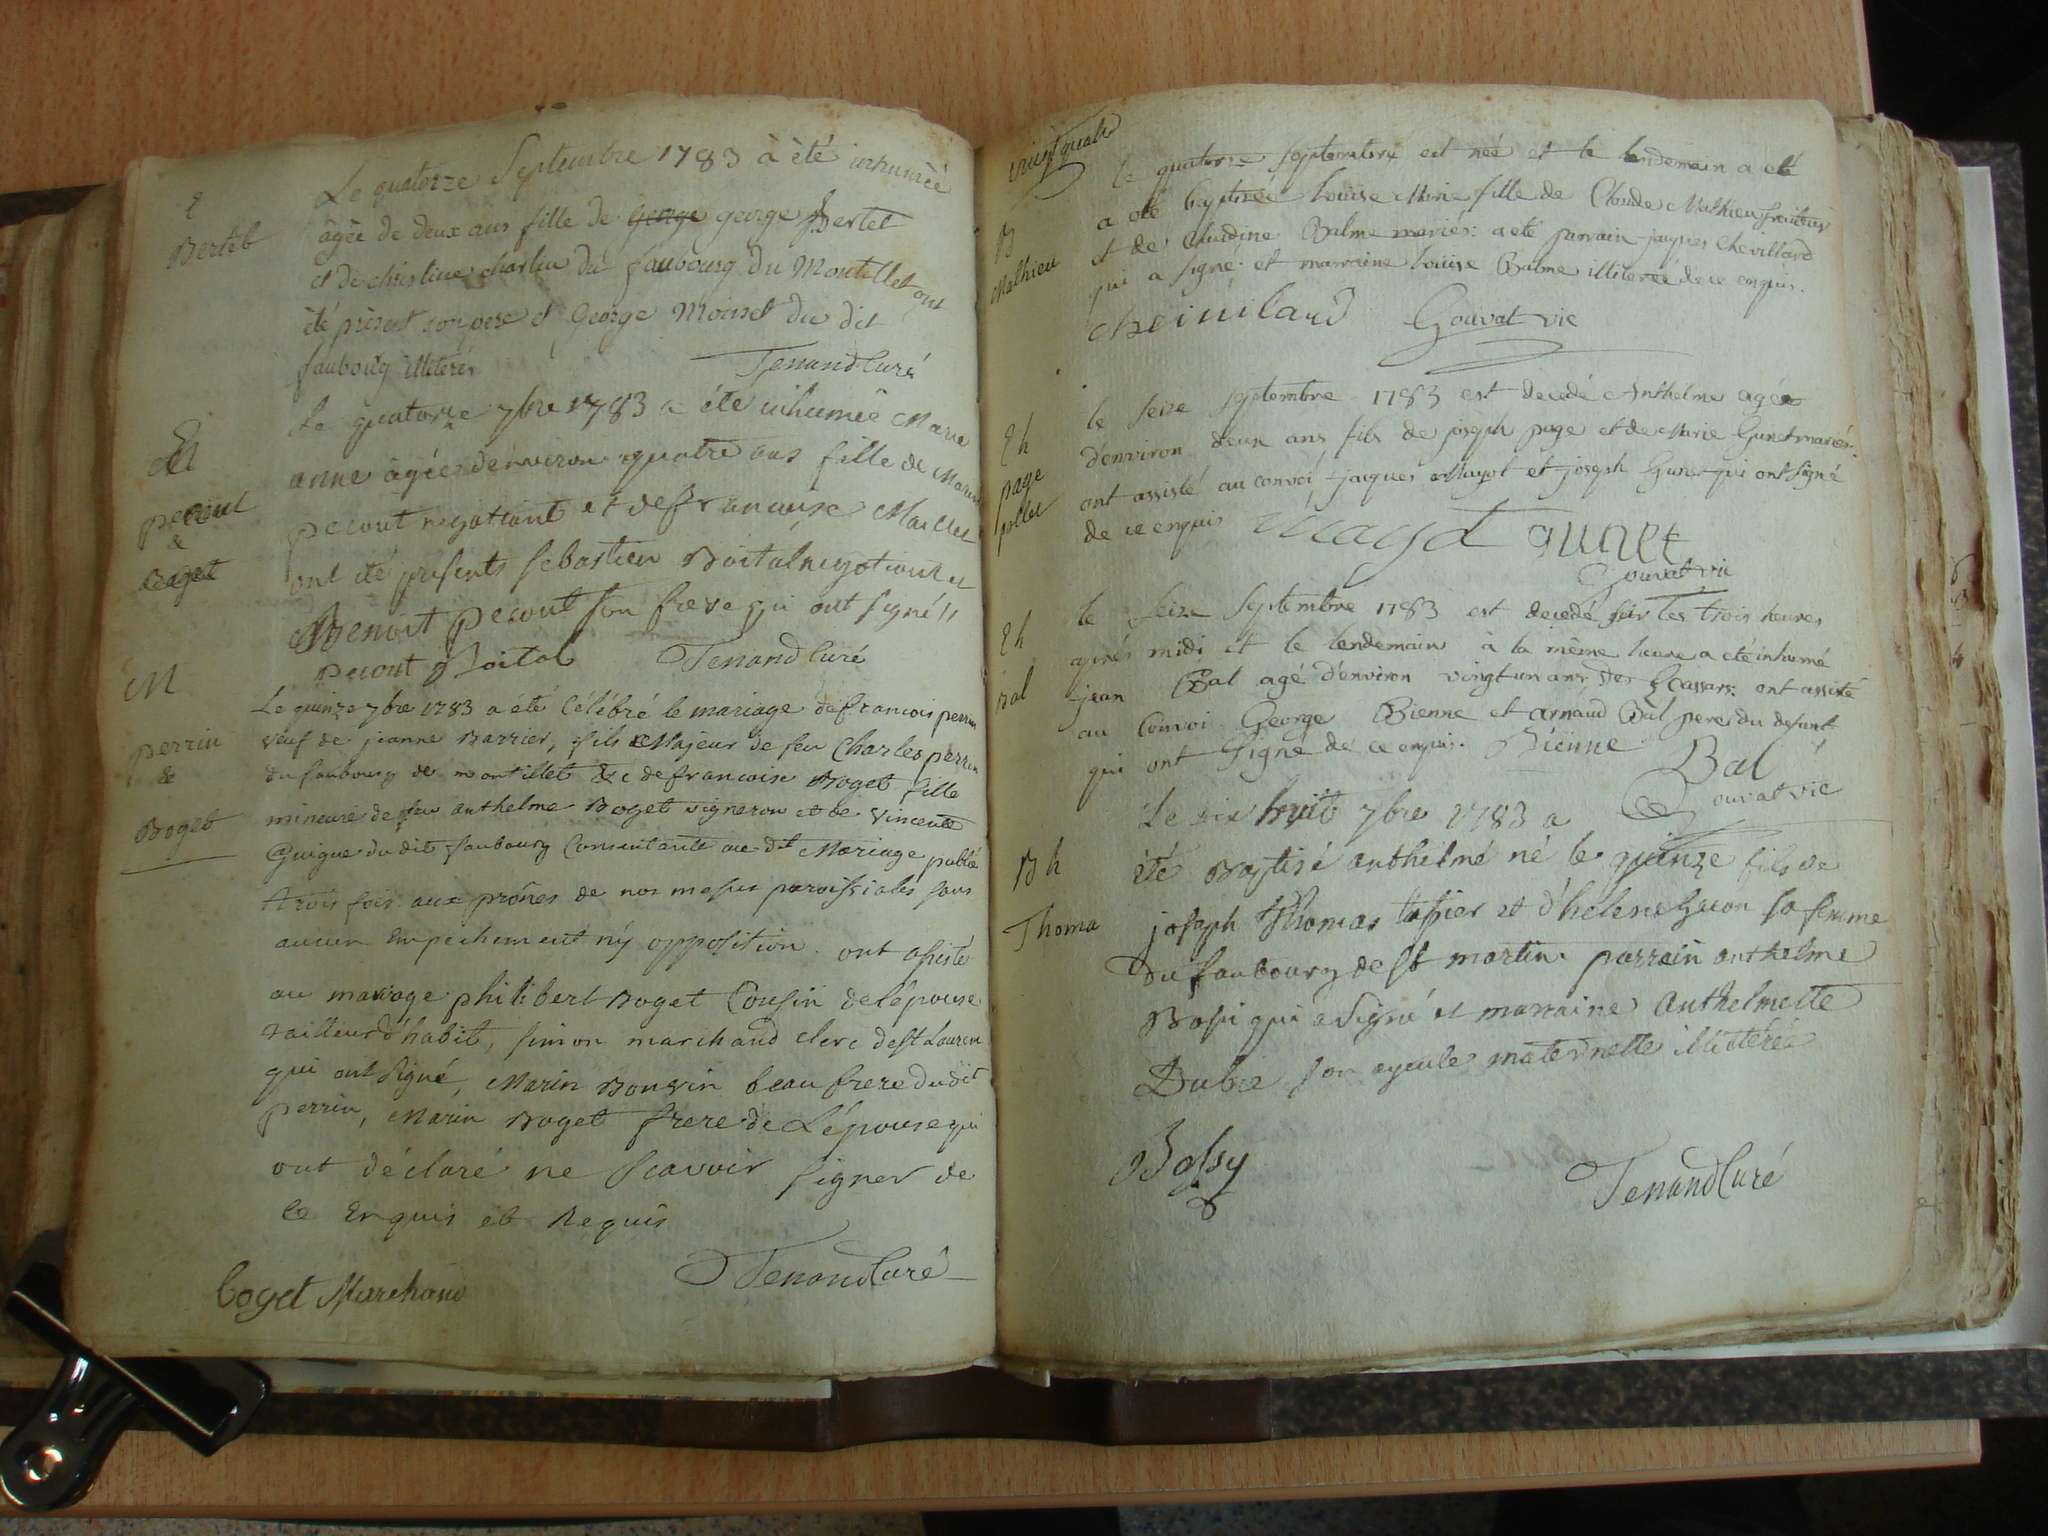 Bertet
Le quatorze Septembre 1783 à été inhumée
âgée de deux ans fille de george george Bertet
et de christine charlin du faubourg du Montillet ont
été présent son pere et George Moisset du dit
faubourg illiterés
Tenand Curé
pecout
&
Le quatorze 7bre 1783 a éte inhumée Marie
anne âgée d'environ quatre ans fille de Marin
pecout negotiant et de francoise Maillet
ont été présents Sebastien Boital negotiant et
Benoit pecout son frere qui ont signé //
pecout Boital Tenand Curé
M
perrin
&
Boget
Le quinze 7bre 1783 a été Célébré le mariage de francois perrin
veuf de jeanne Barrier, fils Majeur de feu Charles perrin
du faubourg de montillet & de francoise Boget fille
mineure de feu anthelme Boget vigneron et de vincente
Guigue du dit faubourg Consentante au dt Mariage publié
trois fois aux prônes de nos messes paroissiales sans
aucun Empechement n'y opposition. ont assisté
au mariage philibert Boget Cousin de l'épouse
tailleur d'habit, simon marchand clerc de St Laurent
qui ont signé, Marin Bonvin beau frere du dit
perrin, Marin Boget frere de L'épouse qui
ont déclaré ne Scavoir signer de
Ce Enquis et Requis
Tenand Curé
boget Marchand
vingt quatre
B
Mathieu
le quatorze septembre est née et le lendemain a eté
a eté baptisée Louise Marie fille de Claude Mathieu
et de Claudine Balme mariés: a eté parrain jaques Chevillard
qui a signé et marraine Louise Balme illiterée de ce enquis.
Gouvat vic
page
le seize septembre 1783 est decedé Anthelme agée
d'environ deux ans fils de joseph page et de Marie Gunet mariés:
ont assisté au convoi jacques Mayot et joseph Gunet qui ont signé
de ce enquis Mayot gunet
Gouvat vic
Bal
le Seize Septembre 1783 est decedé sur les trois heures
après midi et le lendemain à la même heure a eté inhumé
jean Bal agé d'environ vingt un ans ont assisté
au Convoi George Bienne et arnaud Bal pere du defunt
qui ont Signé de ce enquis. Bienne Bal
Gouvat vic
B h
Thoma
Le dix huit 7bre 1783 a
été Baptisé anthelme né le quinze fils de
joseph Thomas et d'helene Guon sa femme
du faubourg de St martin. parrain anthelme
Bossi qui a Signé et marraine Anthelmette
Dubie son ayeule maternelle illiterée
Bossy
Tenand Curé